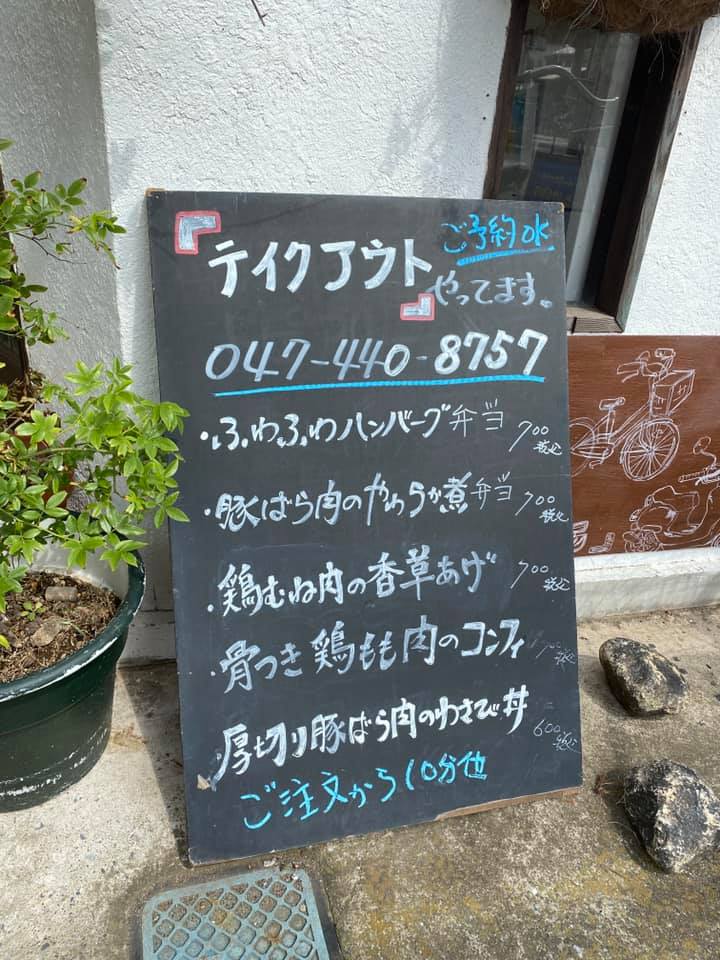 ご予約OK
『テイクアウト』やってます。
047-440-8757
・ふわふわハンバーグ弁当 700 税込
・豚ばら肉のやわらか煮弁当 700 税込
・鶏むね肉の香草あげ 700 税込
・骨つき鶏もも肉のコンフィ 税込
・厚切り豚ばら肉のわさび丼 600 税込
ご注文から10分位